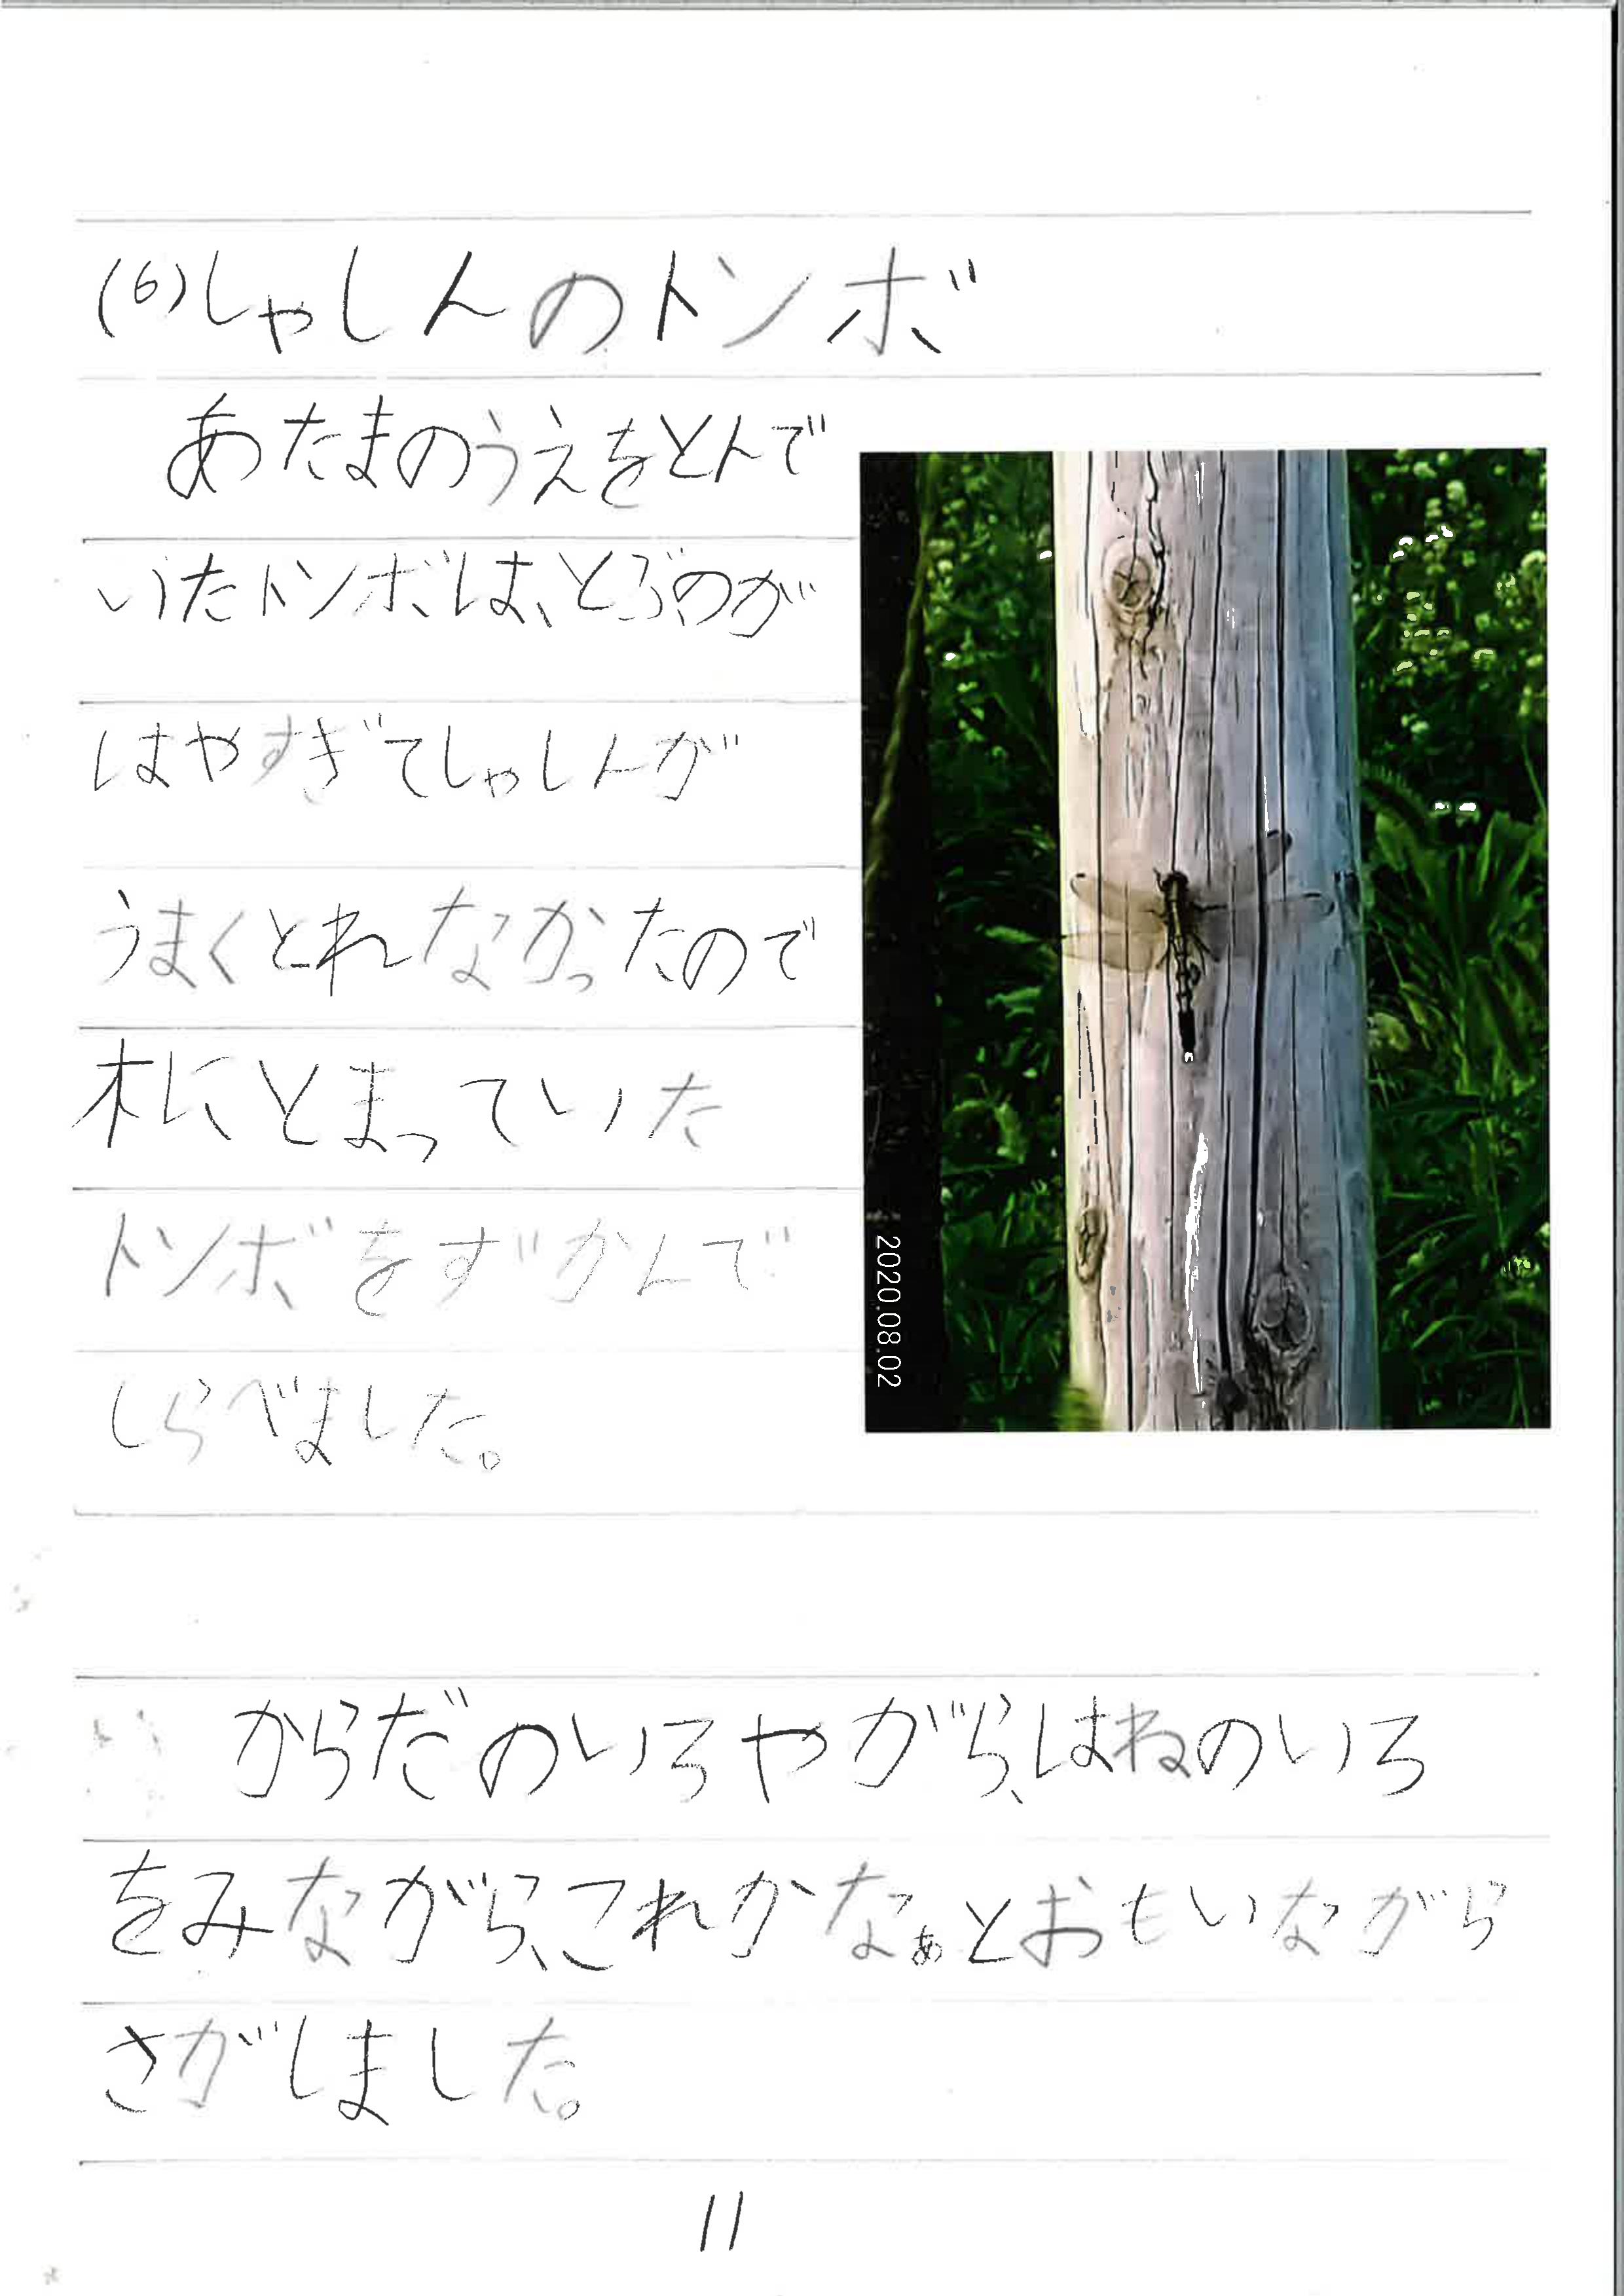 (6)しゃしんのトンボ
あたまのうえをとんで
いたトンボは、とぶのが
はやすぎてしゃしんが
うまくとれなかったので
木にとまっていた
トンボをずかんで
しらべました。
2020.08.02
からだのいろやがら、はねのいろ
をみながら、これかなぁとおもいながら
さがしました。
11